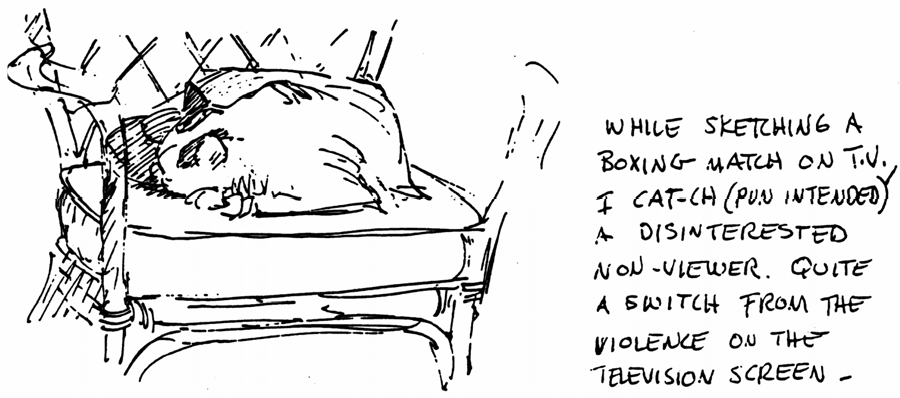 WHILE SKETCHING A
BOXING MATCH ON T.V.,
I CAT-CH (PUN INTENDED)
A DISINTERESTED
NON-VIEWER. QUITE
A SWITCH FROM THE
VIOLENCE ON THE
TELEVISION SCREEN -